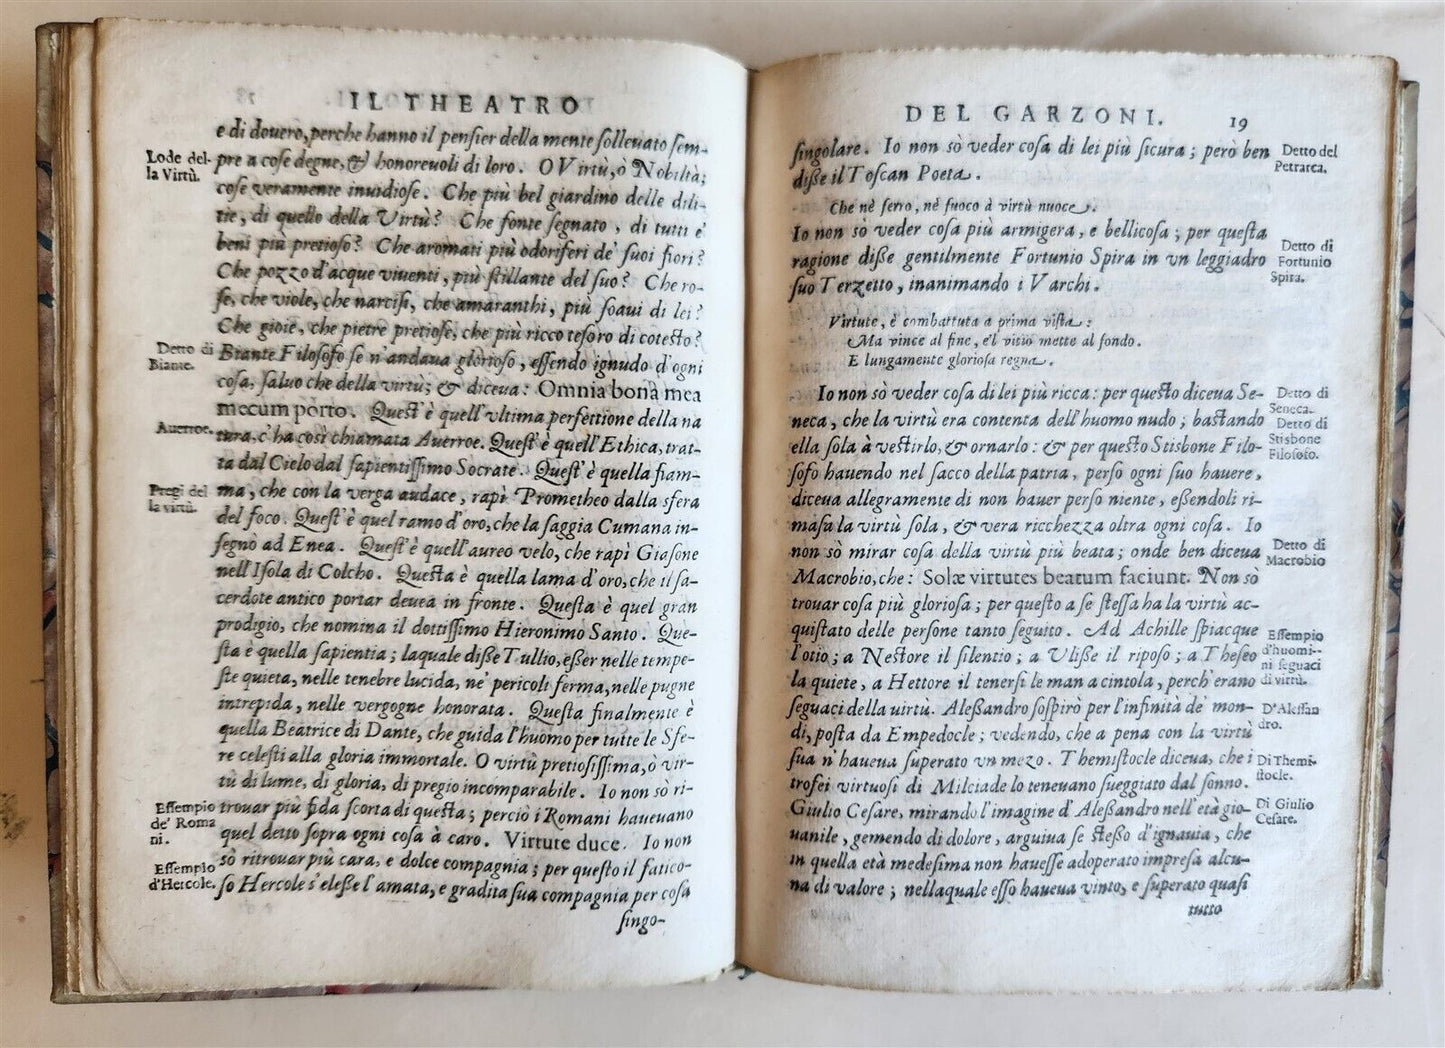 IL THEATRO
e di douero, perche hanno il pensier della mente solleuato sem-
Lode del-
la Virtù.
pre a cose degne, & honoreuoli di loro. O Virtù, ò Nobiltà;
cose veramente inuidiose. Che più bel giardino delle dili-
tie, di quello della Virtù? Che fonte segnato, di tutti e'
beni più pretioso? Che aromati più odoriferi de' suoi fiori?
Che pozzo d'acque viuenti, più stillante del suo? Che ro-
se, che viole, che narcisi, che amaranthi, più soaui di lei?
Che gioie, che pietre pretiose, che più ricco tesoro di cotesto?
Detto di
Biante.
Biante Filosofo se n'andaua glorioso, essendo ignudo d'ogni
cosa, saluo che della virtù; & diceua: Omnia bona mea
mecum porto. Quest'è quell'vltima perfettione della na
Auerroe.
tura, c'ha così chiamata Auerroe. Quest'è quell'Ethica, trat-
ta dal Cielo dal sapientissimo Socrate. Quest'è quella fiam-
Pregi del
la virtù.
ma, che con la verga audace, rapì Prometheo dalla sfera
del foco. Quest'è quel ramo d'oro, che la saggia Cumana in-
segnò ad Enea. Quest'è quell'aureo velo, che rapì Giasone
nell'Isola di Colcho. Questa è quella lama d'oro, che il sa-
cerdote antico portar deuea in fronte. Questa è quel gran
prodigio, che nomina il dottissimo Hieronimo Santo. Que-
sta è quella sapientia; laquale disse Tullio, esser nelle tempe-
ste quieta, nelle tenebre lucida, ne' pericoli ferma, nelle pugne
intrepida, nelle vergogne honorata. Questa finalmente è
quella Beatrice di Dante, che guida l'huomo per tutte le Sfe-
re celesti alla gloria immortale. O virtù pretiosissima, ò vir-
tù di lume, di gloria, di pregio incomparabile. Io non sò ri-
Essempio
de' Roma
ni.
trouar più fida scorta di questa; perciò i Romani haueuano
quel detto sopra ogni cosa à caro. Virtute duce. Io non
Essempio
d'Hercole.
sò ritrouar più cara, e dolce compagnia; per questo il fatico-
so Hercole s'elesse l'amata, e gradita sua compagnia per cosa
singo-
DEL GARZONI. 19
singolare. Io non sò veder cosa di lei più sicura; però ben
Detto del
Petrarca.
disse il Toscan Poeta.
Che nè ferro, nè fuoco à virtù nuoce.
Io non sò veder cosa più armigera, e bellicosa; per questa
Detto di
Fortunio
Spira.
ragione disse gentilmente Fortunio Spira in vn leggiadro
suo Terzetto, inanimando i Varchi.
Virtute, è combattuta a prima vista:
Ma vince al fine, e'l vitio mette al fondo.
E lungamente gloriosa regna.
Io non sò veder cosa di lei più ricca: per questo diceua Se-
Detto di
Seneca.
neca, che la virtù era contenta dell'huomo nudo; bastando
Detto di
Stisbone
Filosofo.
ella sola à vestirlo, & ornarlo: & per questo Stisbone Filo-
sofo hauendo nel sacco della patria, perso ogni suo hauere,
diceua allegramente di non hauer perso niente, essendoli ri-
masa la virtù sola, & vera ricchezza oltra ogni cosa. Io
non sò mirar cosa della virtù più beata; onde ben diceua
Detto di
Macrobio
Macrobio, che: Solæ virtutes beatum faciunt. Non sò
trouar cosa più gloriosa; per questo a se stessa ha la virtù ac-
quistato delle persone tanto seguito. Ad Achille spiacque
Essempio
d'huomi-
ni seguaci
di virtù.
l'otio; a Nestore il silentio; a Ulisse il riposo; a Theseo
la quiete, a Hettore il tenersi le man a cintola, perch'erano
seguaci della uirtù. Alessandro sospirò per l'infinità de' mon-
D'Alessan
dro.
di, posta da Empedocle; vedendo, che a pena con la virtù
sua n'haueua superato vn mezo. Themistocle diceua, che i
Di Themi-
stocle.
trofei virtuosi di Milciade lo teneuano sueggiato dal sonno.
Di Giulio
Cesare.
Giulio Cesare, mirando l'imagine d'Alessandro nell'età gio-
uanile, gemendo di dolore, arguiua se stesso d'ignauia, che
in quella età medesima non hauesse adoperato impresa alcu-
na di valore; nellaquale esso haueua vinto, e superato quasi
tutto